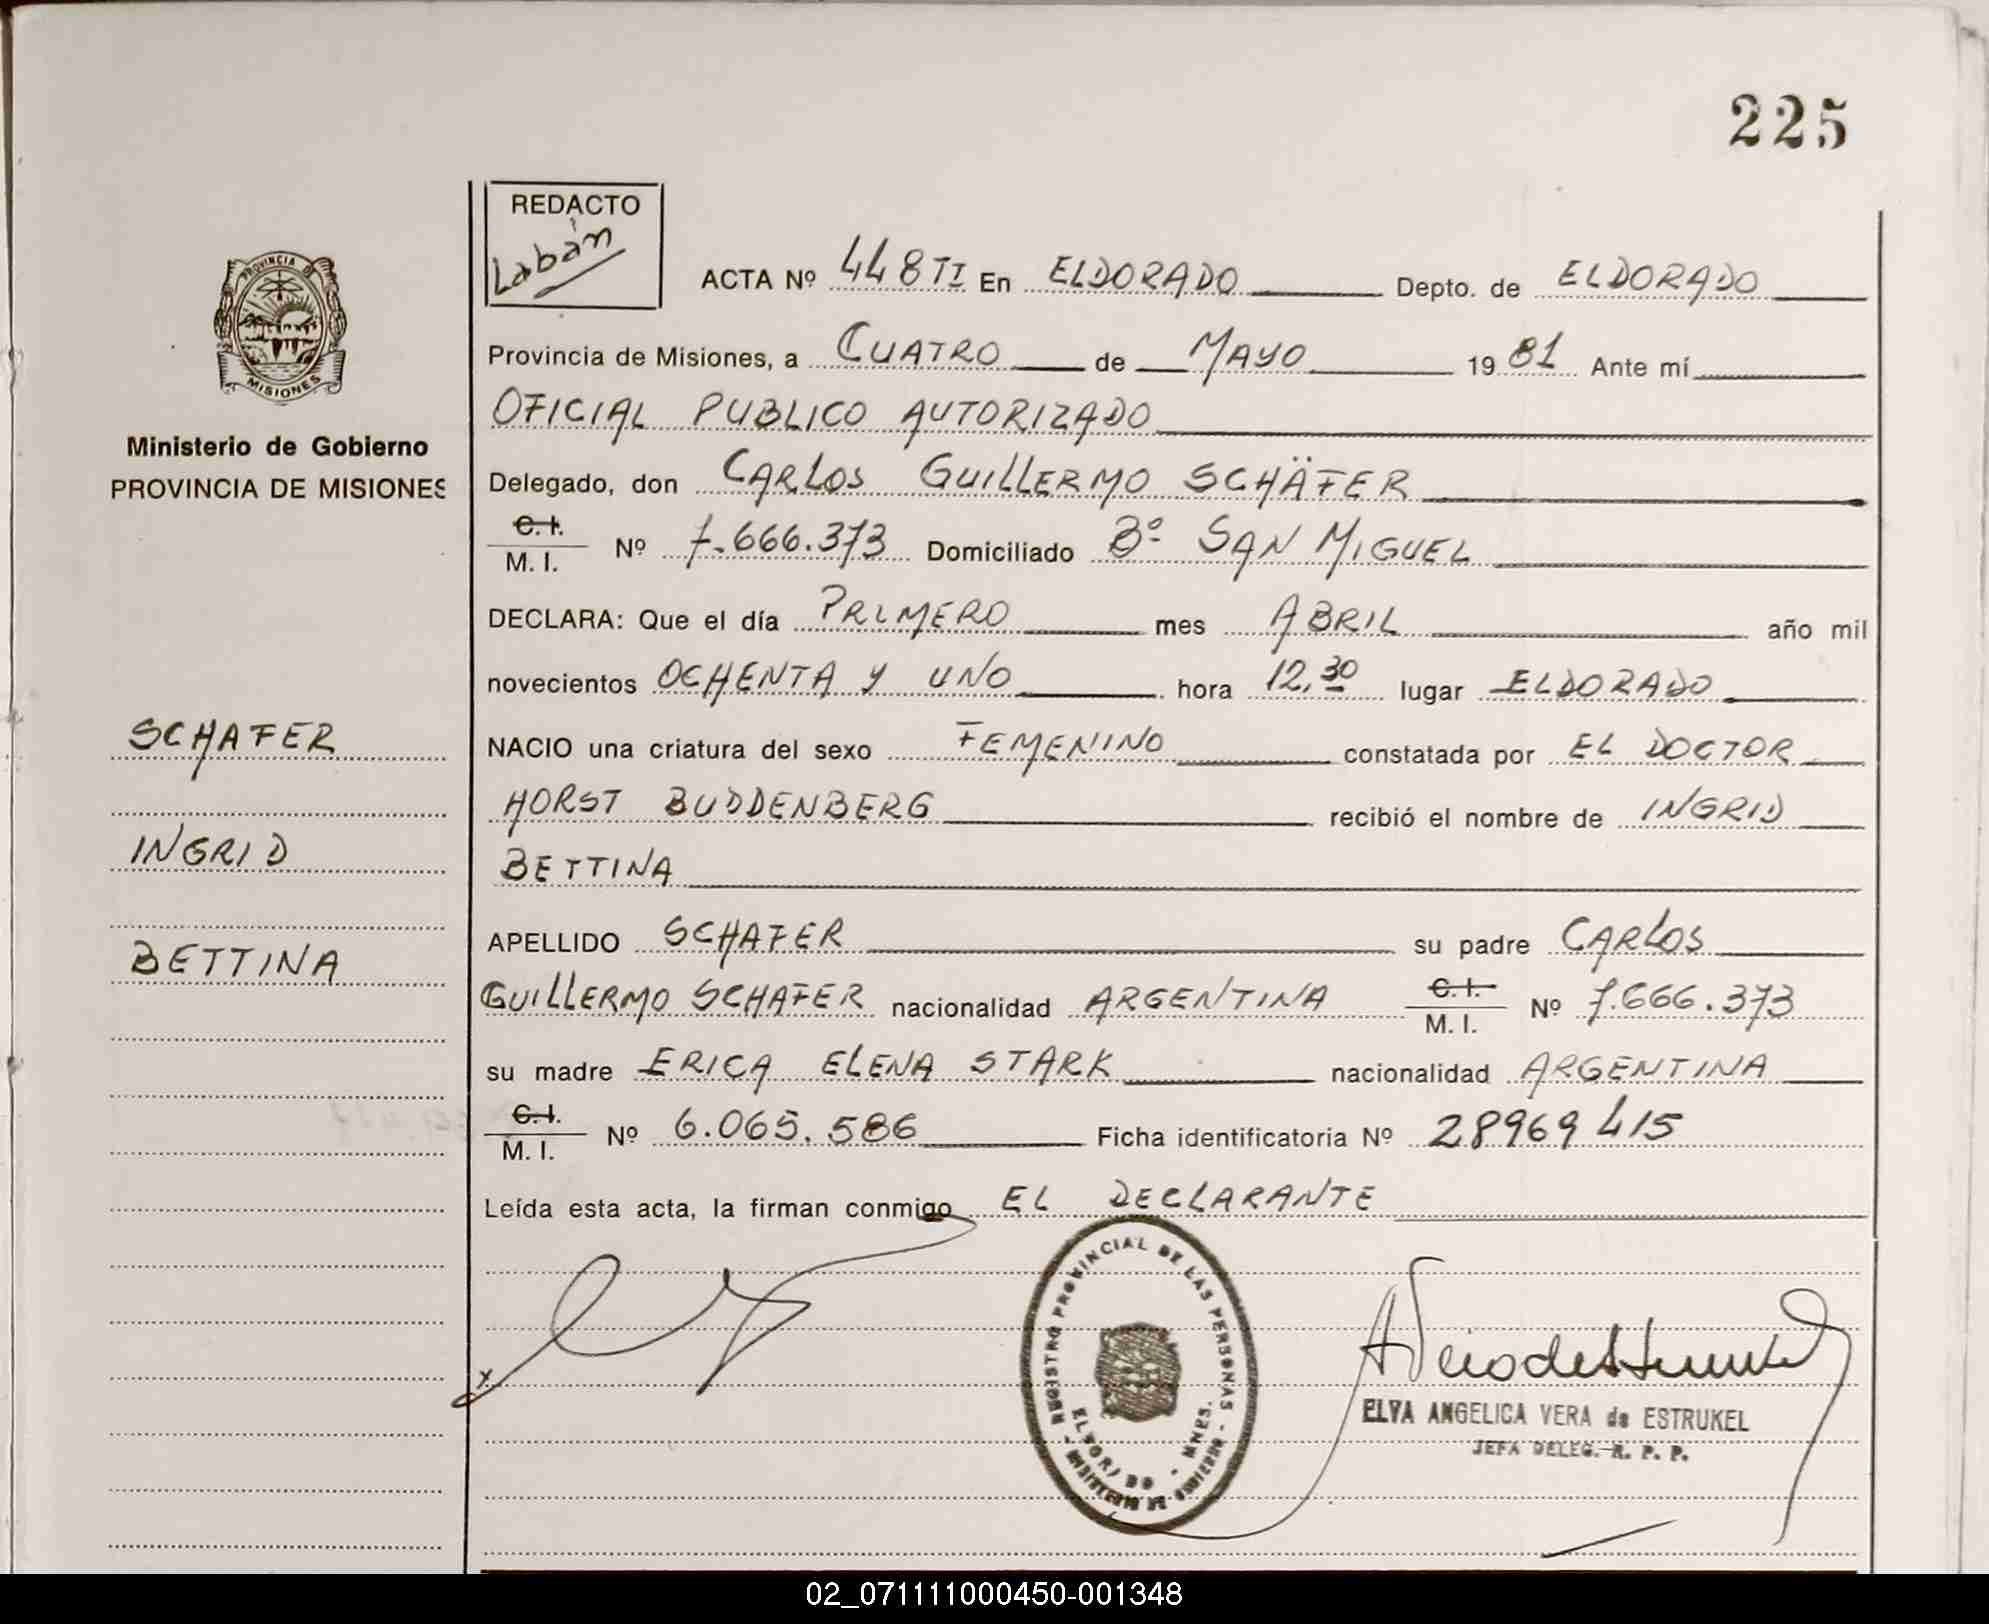 225
REDACTO
Labán
PROVINCIA DE
MISIONES
Ministerio de Gobierno
PROVINCIA DE MISIONES
ACTA Nº 448 TI En ELDORADO Depto. de ELDORADO
Provincia de Misiones, a CUATRO de MAYO 1981 Ante mí
OFICIAL PUBLICO AUTORIZADO
Delegado, don CARLOS GUILLERMO SCHÄFER
C.I. M.I. Nº 7.666.373 Domiciliado Bº SAN MIGUEL
DECLARA: Que el día PRIMERO mes ABRIL año mil
novecientos OCHENTA Y UNO hora 12,30 lugar ELDORADO
NACIO una criatura del sexo FEMENINO constatada por EL DOCTOR
HORST BUDDENBERG recibió el nombre de INGRID
BETTINA
APELLIDO SCHAFER su padre CARLOS
GUILLERMO SCHAFER nacionalidad ARGENTINA C.I. M.I. Nº 7.666.373
su madre ERICA ELENA STARK nacionalidad ARGENTINA
C.I. M.I. Nº 6.065.586 Ficha identificatoria Nº 28969415
Leída esta acta, la firman conmigo EL DECLARANTE
SCHAFER
INGRID
BETTINA
REGISTRO PROVINCIAL DE LAS PERSONAS - MINISTERIO DE GOBIERNO -
ELDORADO - MNES.
ELVA ANGELICA VERA de ESTRUKEL
JEFA DELEG. R. P. P.
02_071111000450-001348